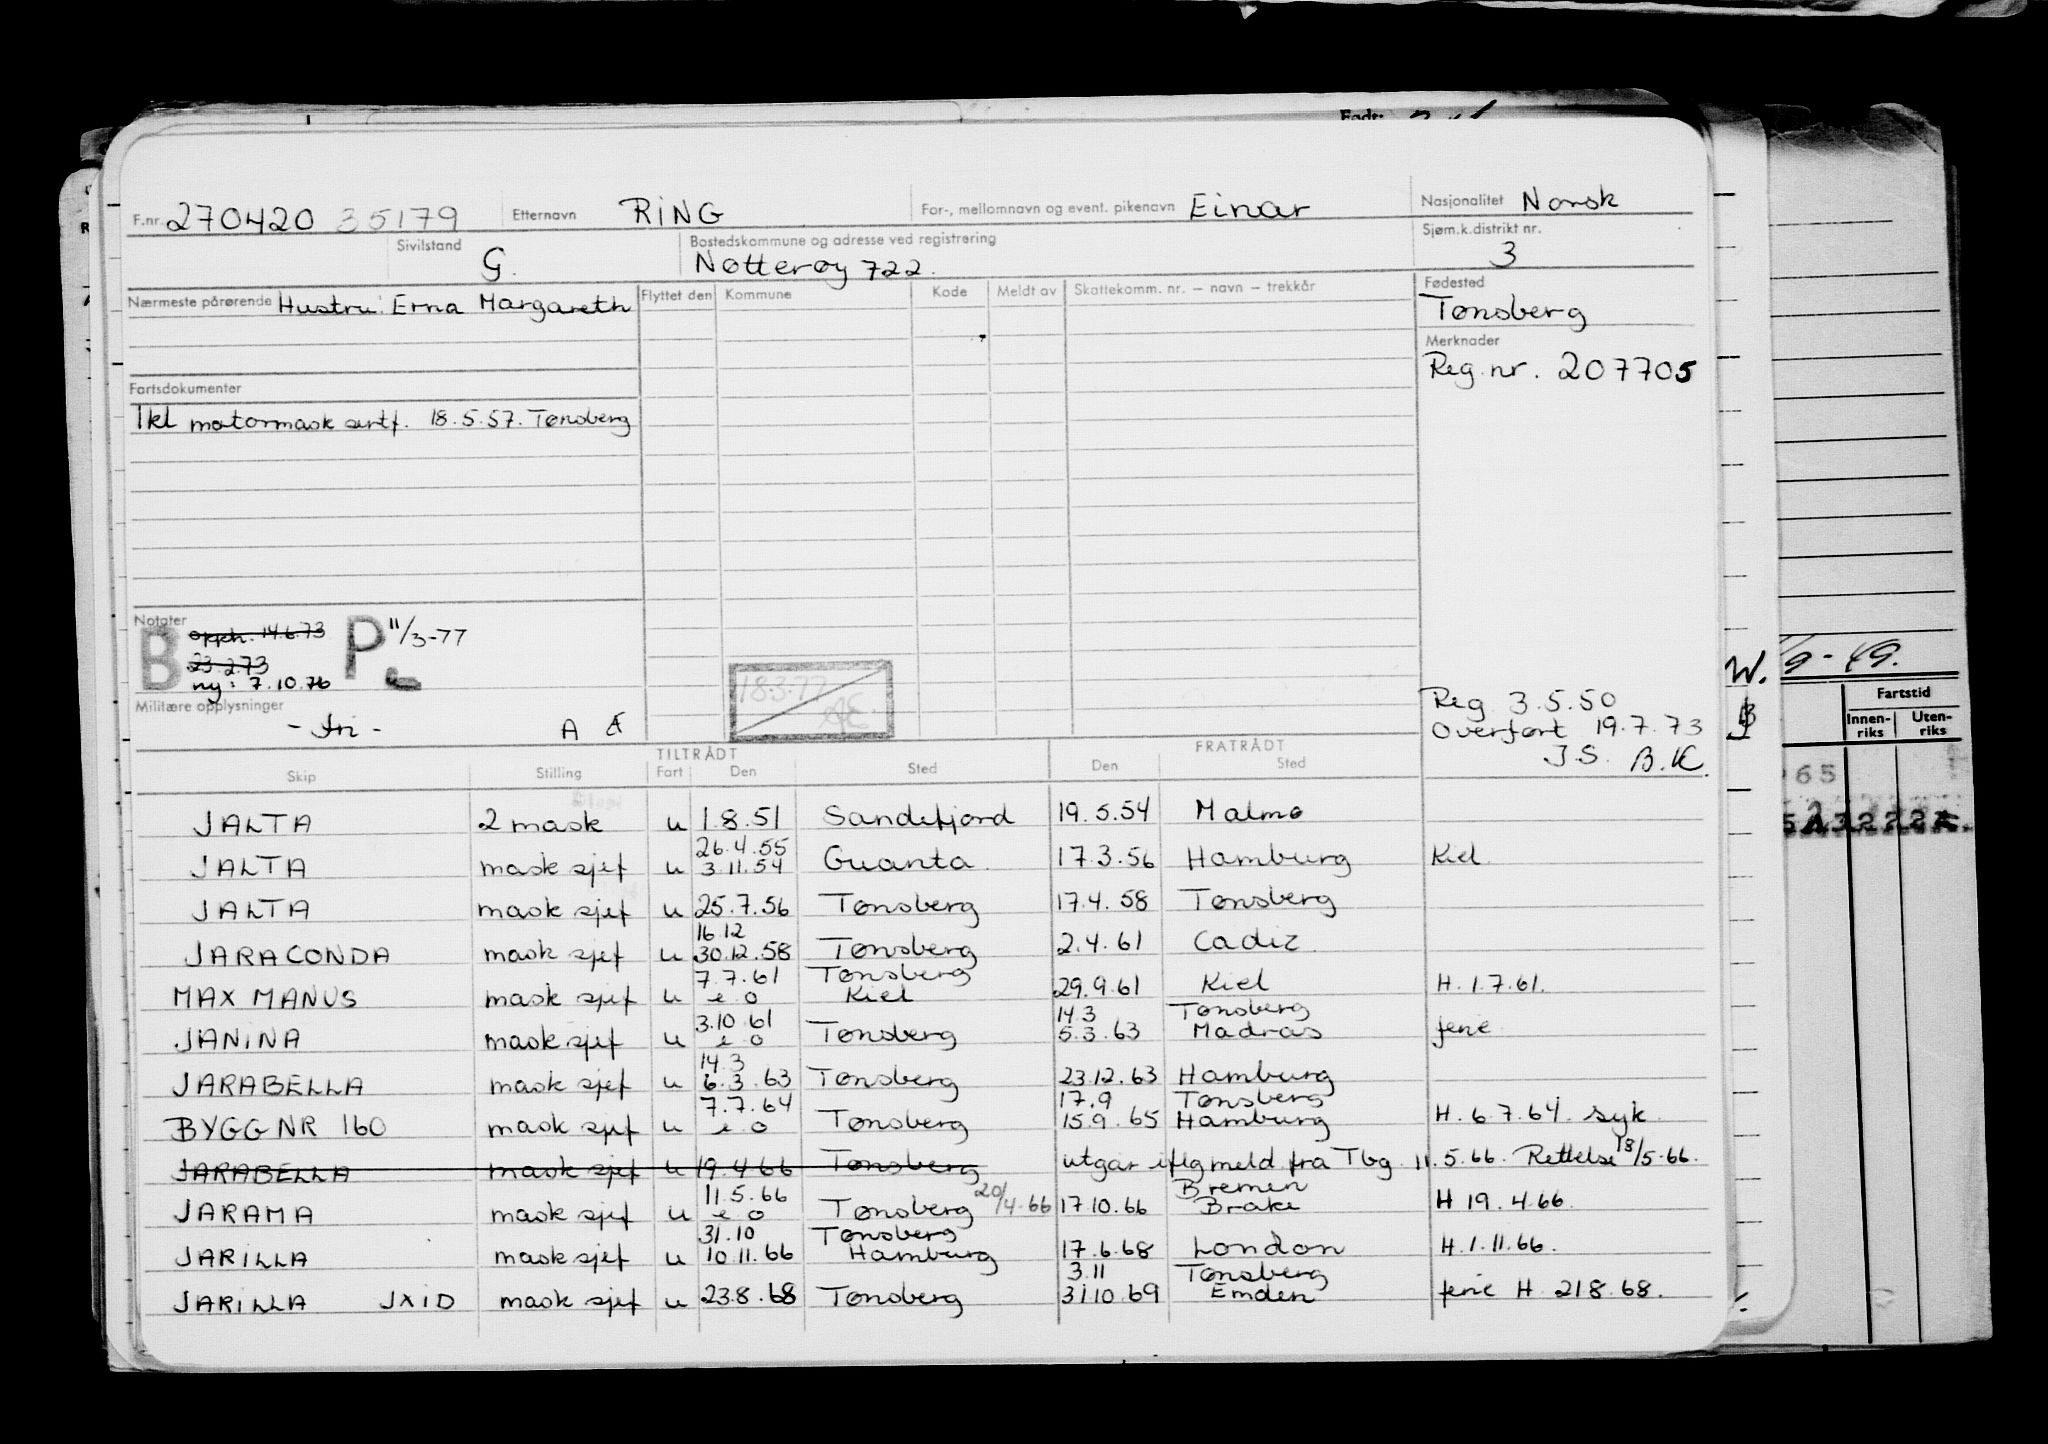 Født:
F.nr. 270420 35179 Etternavn RING For-, mellomnavn og event. pikenavn Einar Nasjonalitet Norsk
Sivilstand G. Bostedskommune og adresse ved registrering Nøtterøy 722. Sjøm.k.distrikt nr. 3
Nærmeste pårørende Hustru: Erna Margareth Flyttet den Kommune Kode Meldt av Skattekomm. nr. – navn – trekkår Fødested
Tønsberg
Merknader
Reg. nr. 207705
Fartsdokumenter
1kl motormask sertf. 18.5.57. Tønsberg
Notater
B opph. 14.6.73 P 11/3-77
23.2.73
ny: 7.10.76
18.3.77
Militære opplysninger
- fri - A
Reg 3.5.50
Overført 19.7.73
J.S. B.K.
9-49.
W.
Fartstid
Innen-riks Uten-riks
TILTRÅDT FRATRÅDT
Skip Stilling Fart Den Sted Den Sted
JALTA 2 mask u 1.8.51 Sandefjord 19.5.54 Malmø
26.4.55
JALTA mask sjef u 3.11.54 Guanta 17.3.56 Hamburg Kiel
JALTA mask sjef u 25.7.56 Tønsberg 17.4.58 Tønsberg
16.12
JARACONDA mask sjef u 30.12.58 Tønsberg 2.4.61 Cadiz
7.7.61 Tønsberg
MAX MANUS mask sjef u e o Kiel 29.9.61 Kiel H. 1.7.61.
3.10.61 14.3 Tønsberg
JANINA mask sjef u e o Tønsberg 5.3.63 Madras ferie
14.3
JARABELLA mask sjef u 6.3.63 Tønsberg 23.12.63 Hamburg
7.7.64 17.9 Tønsberg
BYGG NR 160 mask sjef u e o Tønsberg 15.9.65 Hamburg H. 6.7.64. syk
JARABELLA mask sjef u 19.4.66 Tønsberg utgår iflg meld. fra Tbg 11.5.66. Rettelse 18/5-66.
11.5.66 20/4-66 Bremen
JARAMA mask sjef u e o Tønsberg 17.10.66 Brake H 19.4.66.
31.10 Tønsberg
JARILLA mask sjef u 10.11.66 Hamburg 17.6.68 London H. 1.11.66.
3.11 Tønsberg
JARILLA JXID mask sjef u 23.8.68 Tønsberg 31.10.69 Emden ferie H 21.8.68.